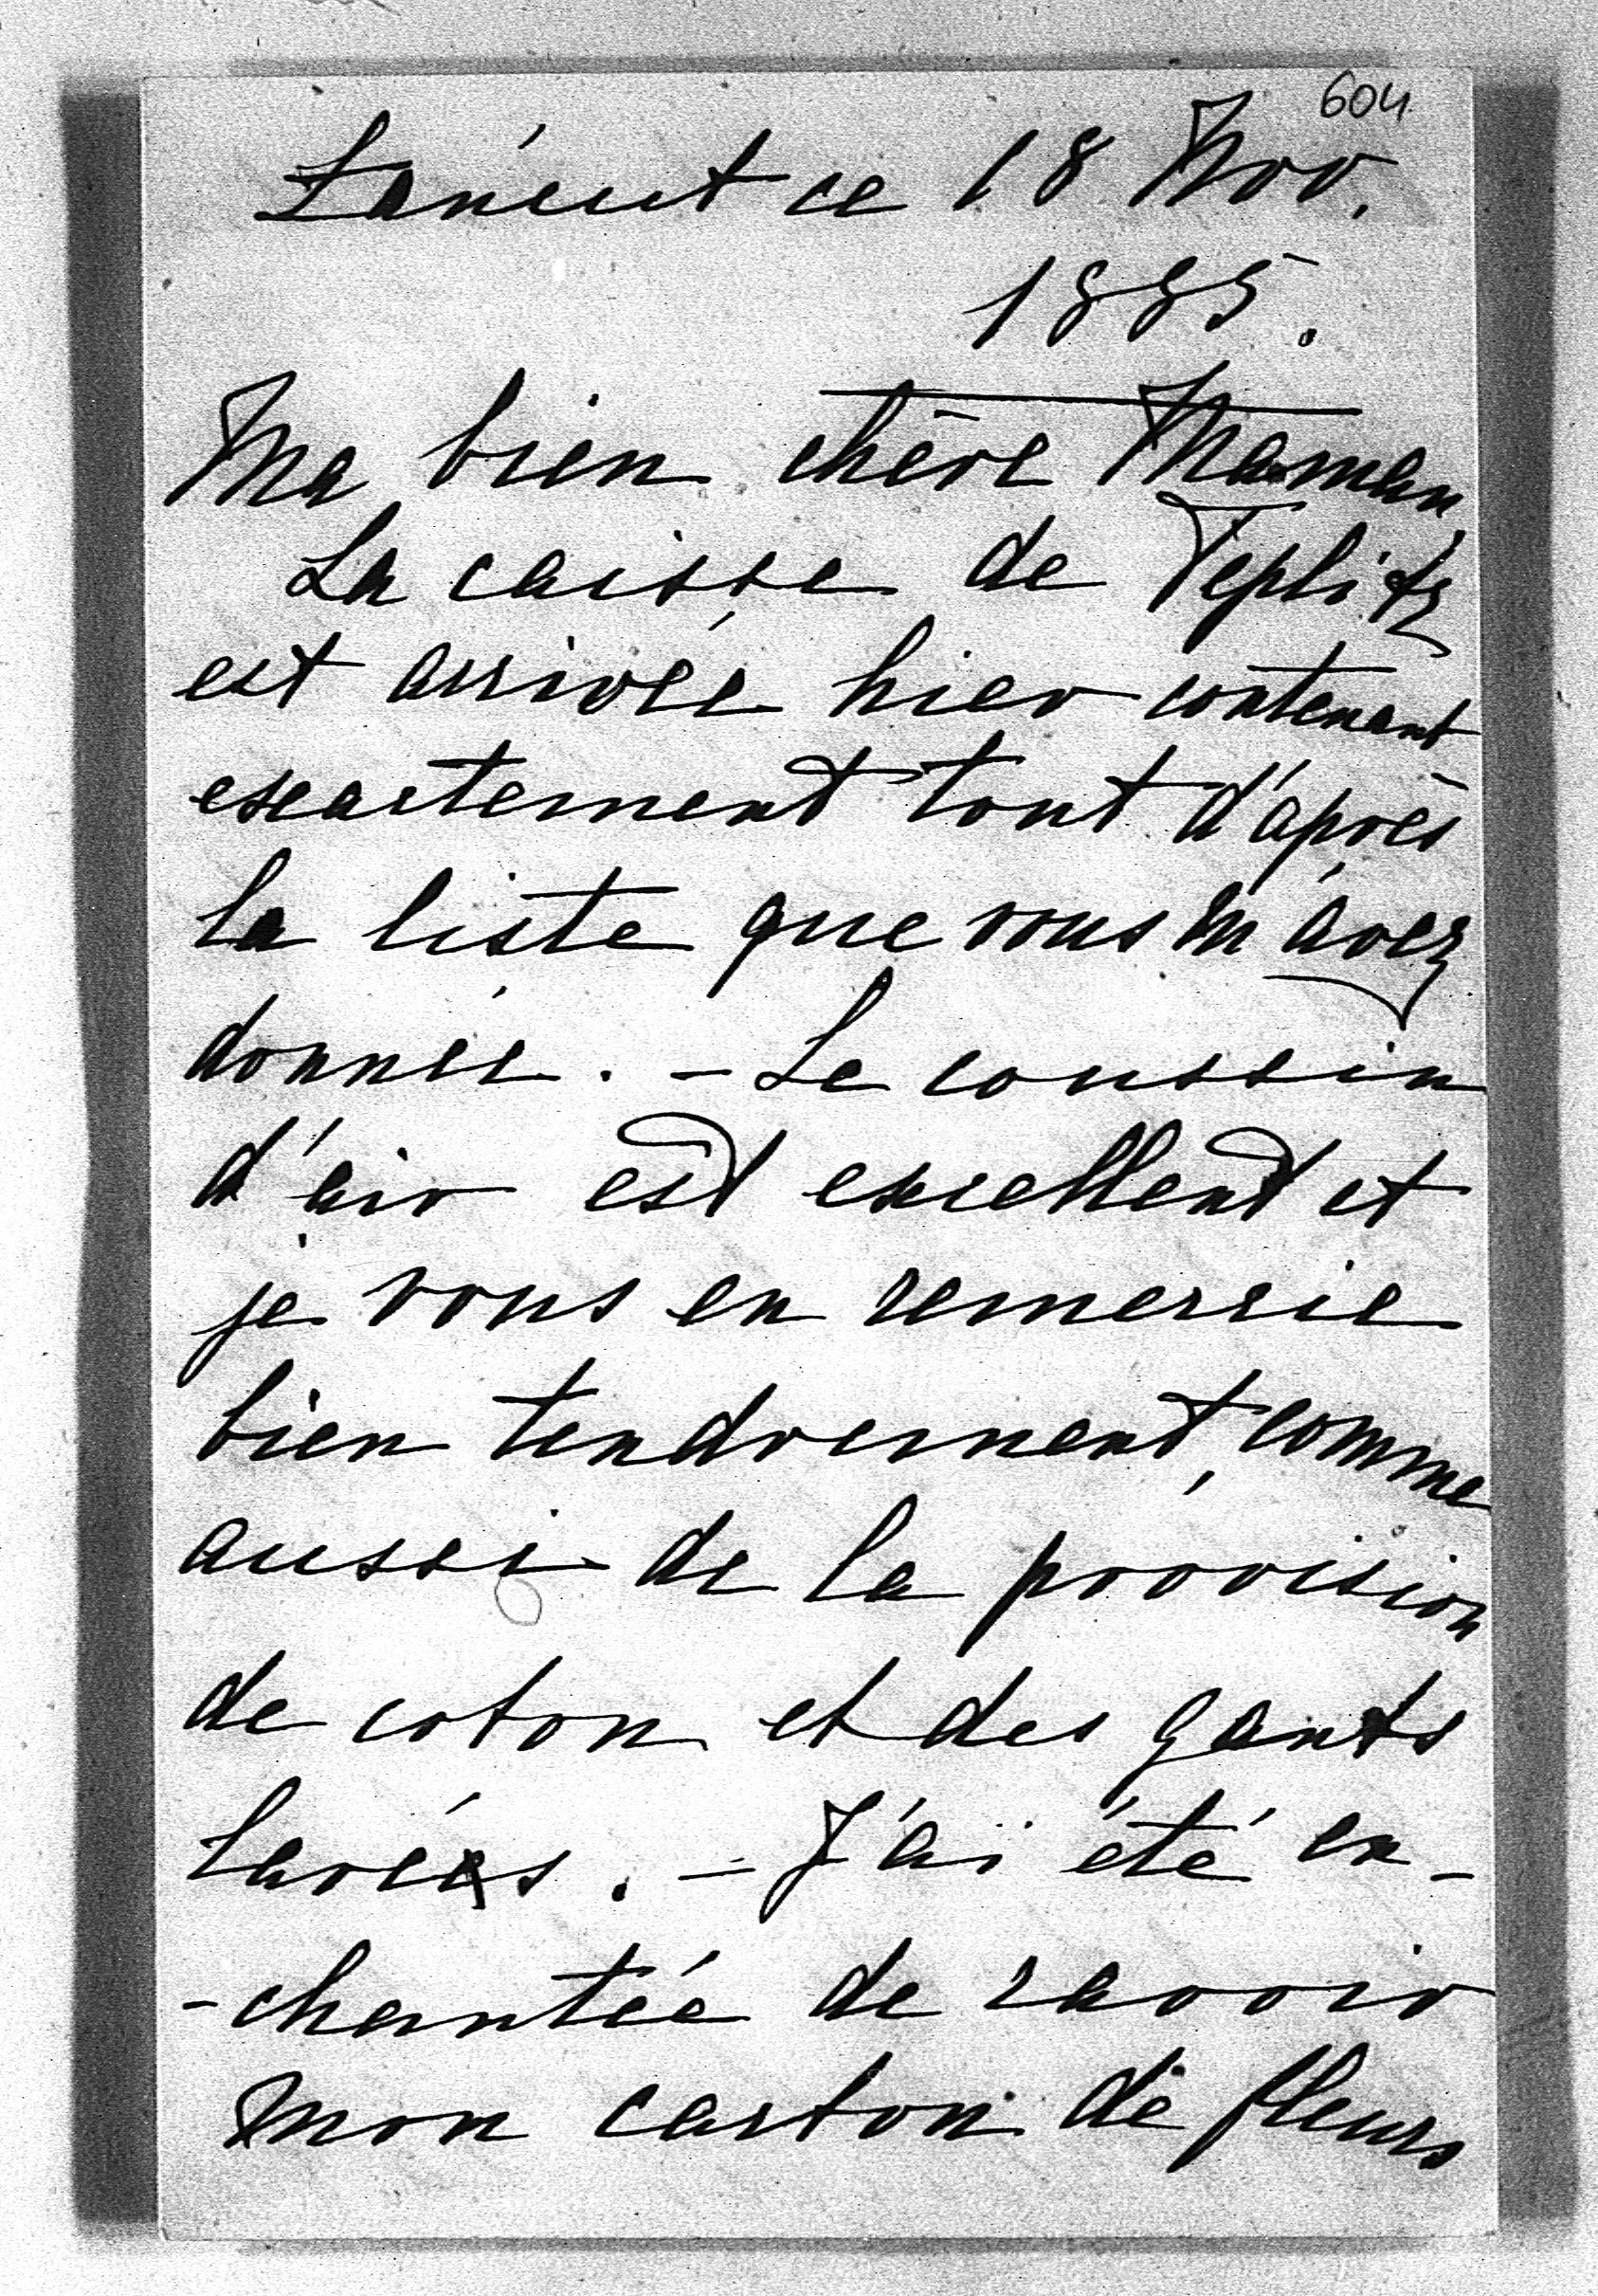 604
Łańcut ce 18 Nov.
1885.
Ma bien chère Maman,
La caisse de Teplitz
est arrivée hier contenant
exactement tout d'après
la liste que vous m'avez
donnée. - Le coussin
d'air est excellent et
je vous en remercie
bien tendrement, comme
aussi de la provision
de coton et des gants
lavés. - J'ai été en-
-chantée de ravoir
mon carton de fleurs